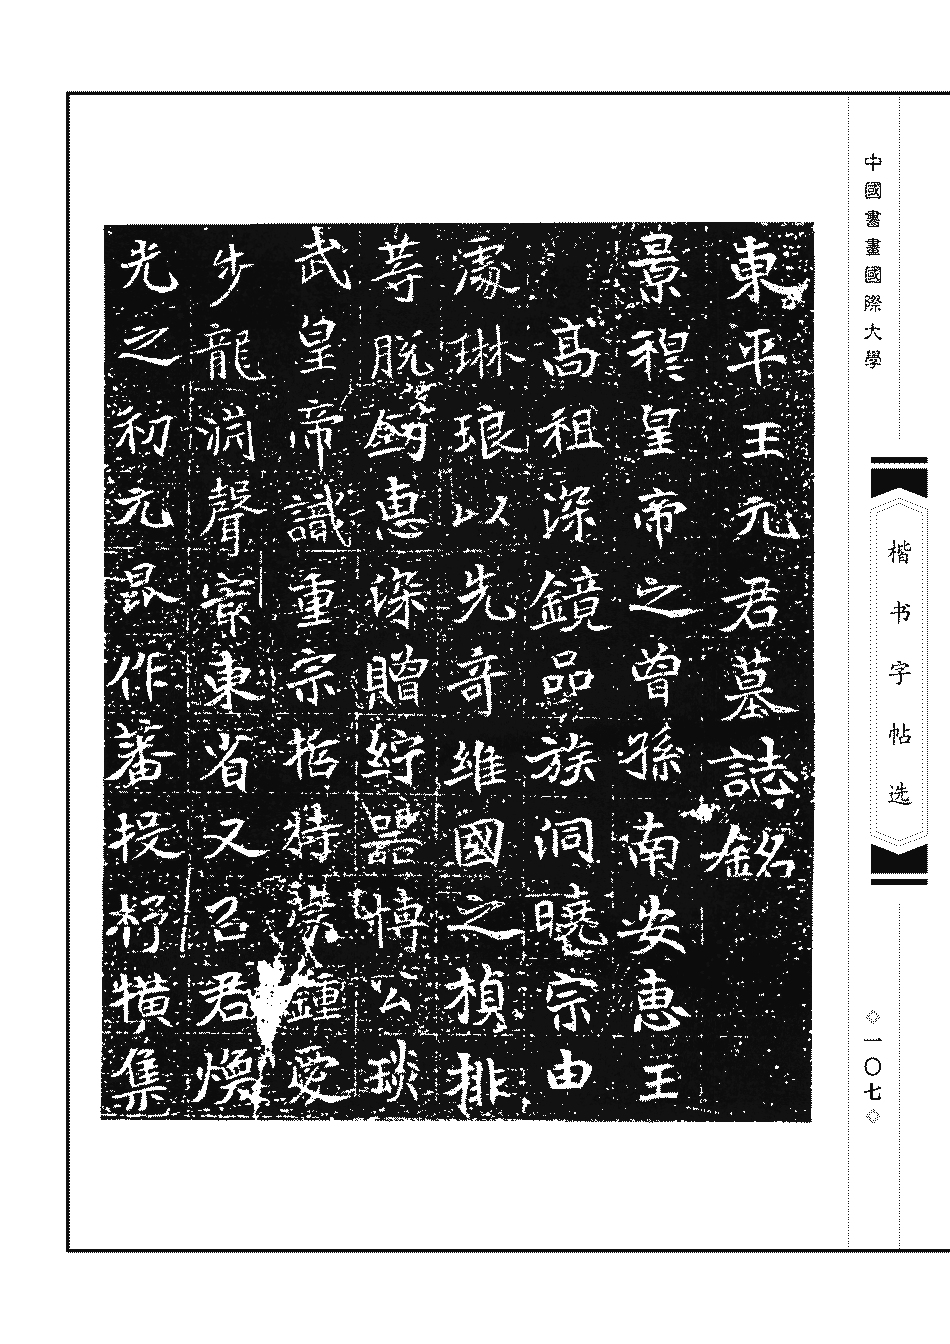 中國書畫國際大學
楷书字帖选
◇一〇七◇
東平王元君墓誌銘
景穆皇帝之曾孫南安惠王
高祖深鏡品族洞曉宗由
處琳琅以先奇維國之楨排
等脫劒惠深贈紵器博公琰
武皇帝識重宗哲特榮鍾愛
步龍淵聲東省又召君焕
光之初元昆作蕃投杼橫集